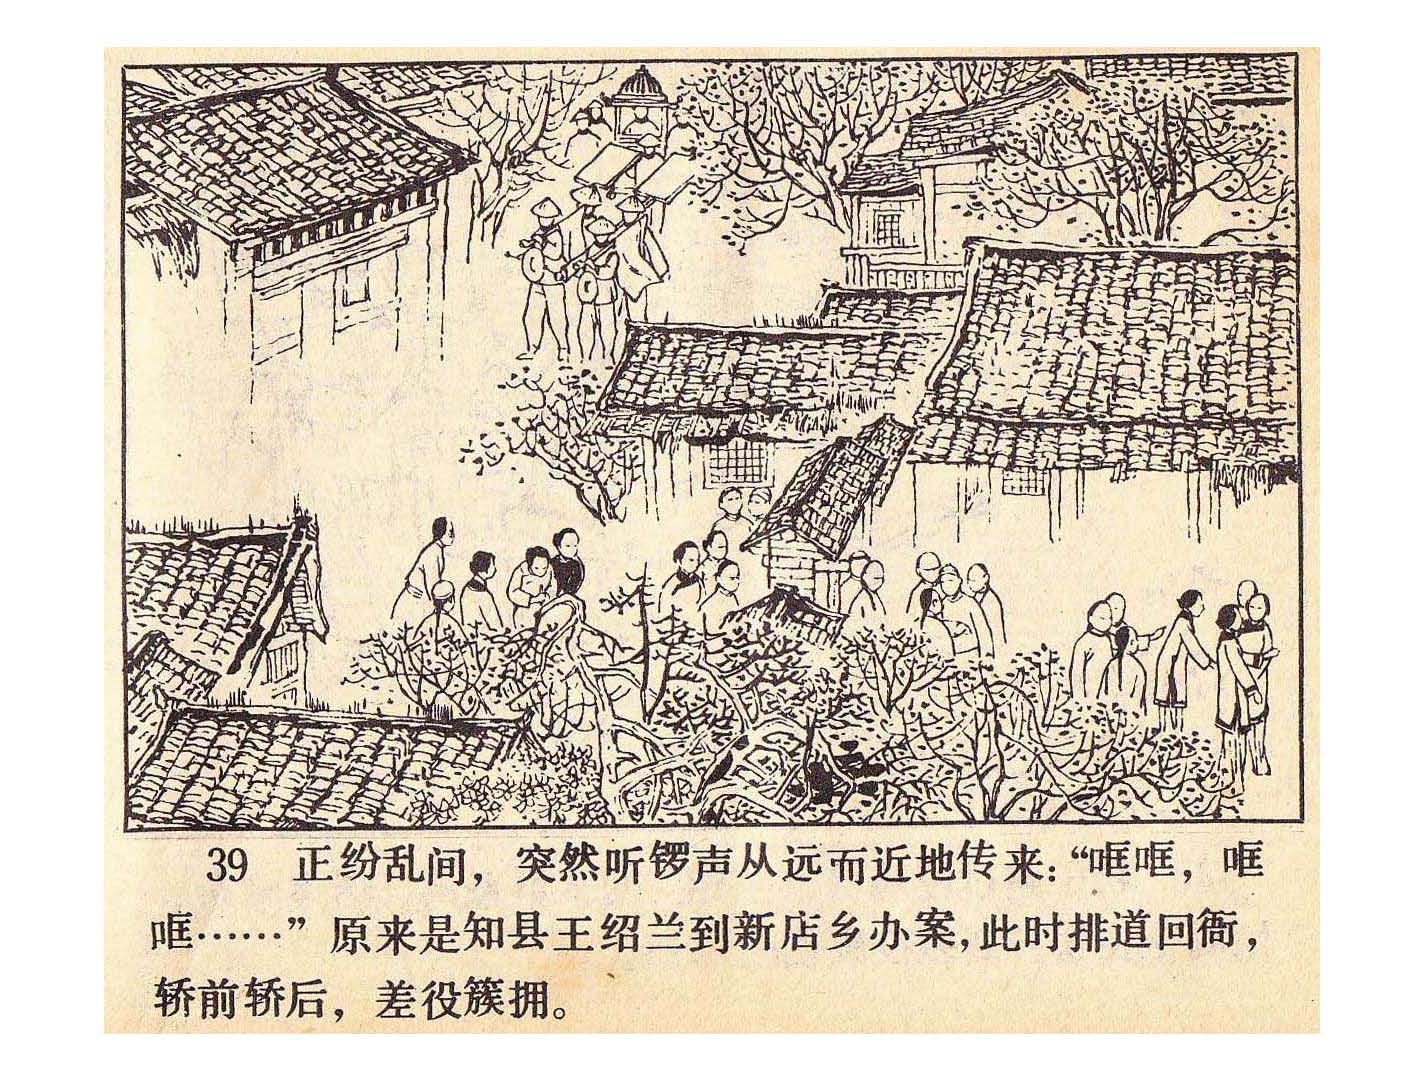 39 正纷乱间，突然听锣声从远而近地传来：“哐哐，哐
哐……”原来是知县王绍兰到新店乡办案，此时排道回衙，
轿前轿后，差役簇拥。